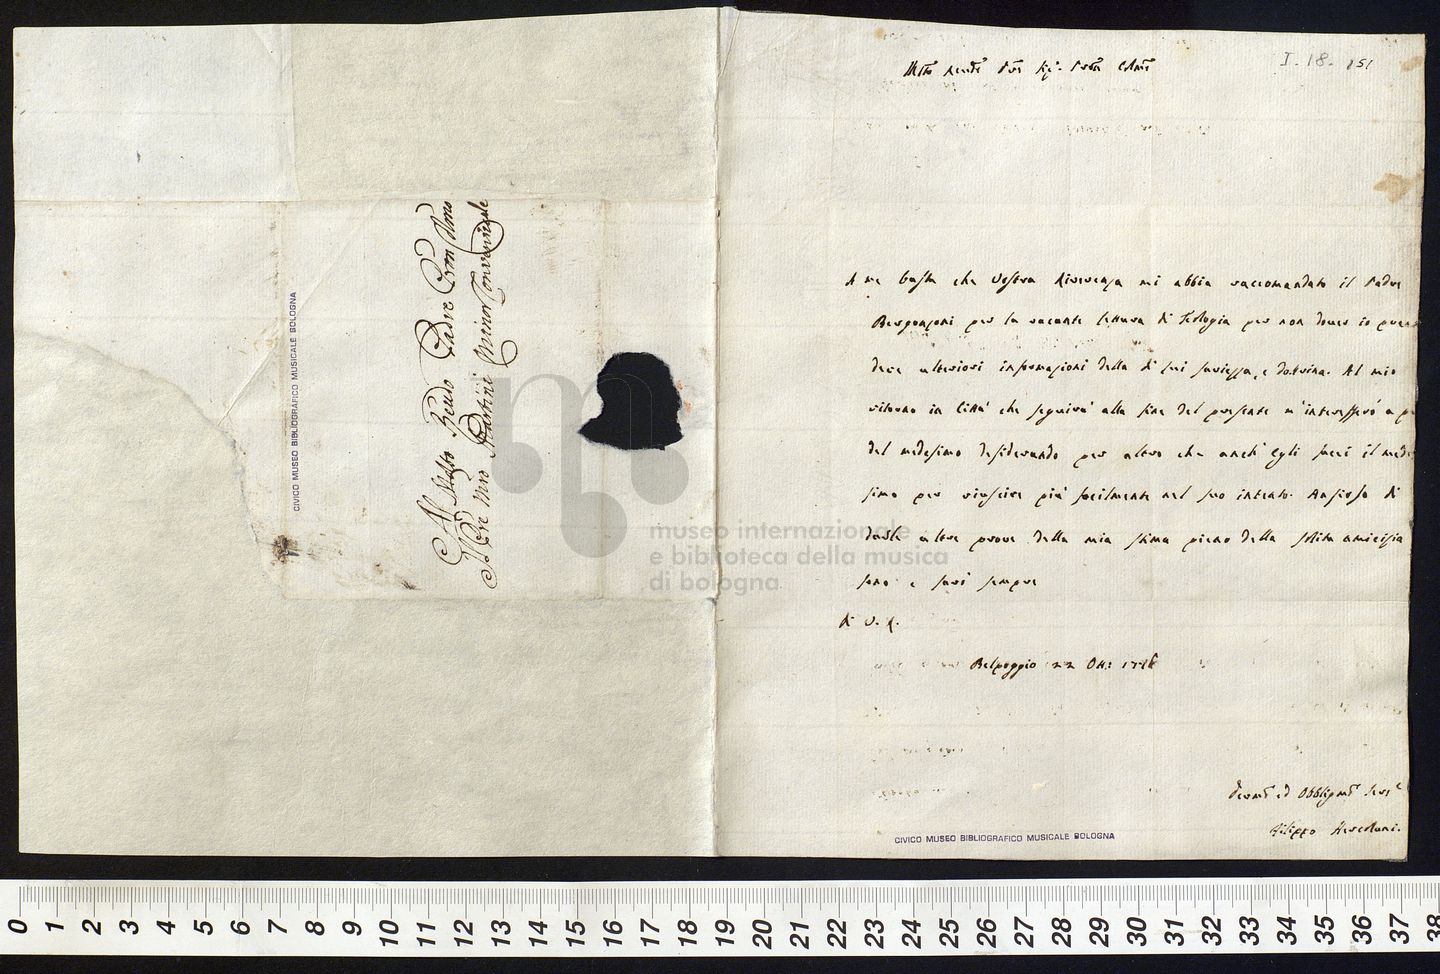 Al Molto Rendo Padre Pron Mio
Il Pre Mro Martini Minor Conventuale
CIVICO MUSEO BIBLIOGRAFICO MUSICALE BOLOGNA
I. 18. 151
A me basta che Vostra Riverenza mi abbia raccomandato il Padre
Bergonzoni per la vacante lettura di Teologia per non dover io
dere ulteriori informazioni della di lui saviezza, e dottrina. Al mio
ritorno in Città che seguirà alla fine del presente m'interesserò a
del medesimo desiderando per altro che anch'Egli facci il mede
simo per riuscire più facilmente nel suo intento. Ansioso di
darle altre prove della mia stima pieno della solita amicizia
sono e sarò sempre
di V. R.
Belpoggio 22 Ott:
ed Obbligmo
Filippo Hercolani.
CIVICO MUSEO BIBLIOGRAFICO MUSICALE BOLOGNA
museo internazionale
e biblioteca della musica
di bologna
0 1 2 3 4 5 6 7 8 9 10 11 12 13 14 15 16 17 18 19 20 21 22 23 24 25 26 27 28 29 30 31 32 33 34 35 36 37 38